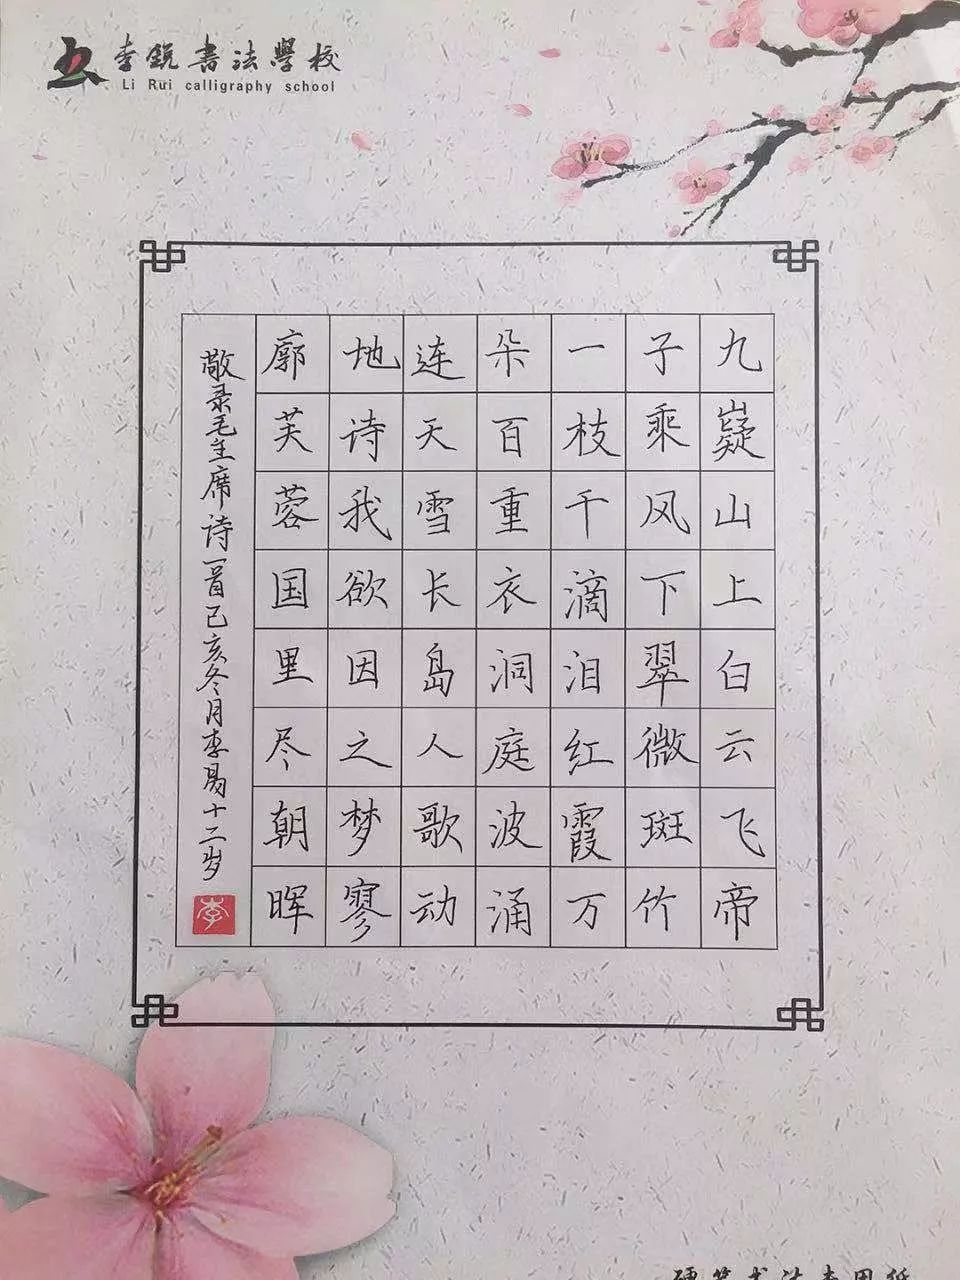 李銳書法學校
Li Rui calligraphy school
九嶷山上白云飞帝
子乘风下翠微斑竹
一枝千滴泪红霞万
朵百重衣洞庭波涌
连天雪长岛人歌动
地诗我欲因之梦寥
廓芙蓉国里尽朝晖
敬录毛主席诗一首己亥冬月李易十二岁
李
硬笔书法专用纸